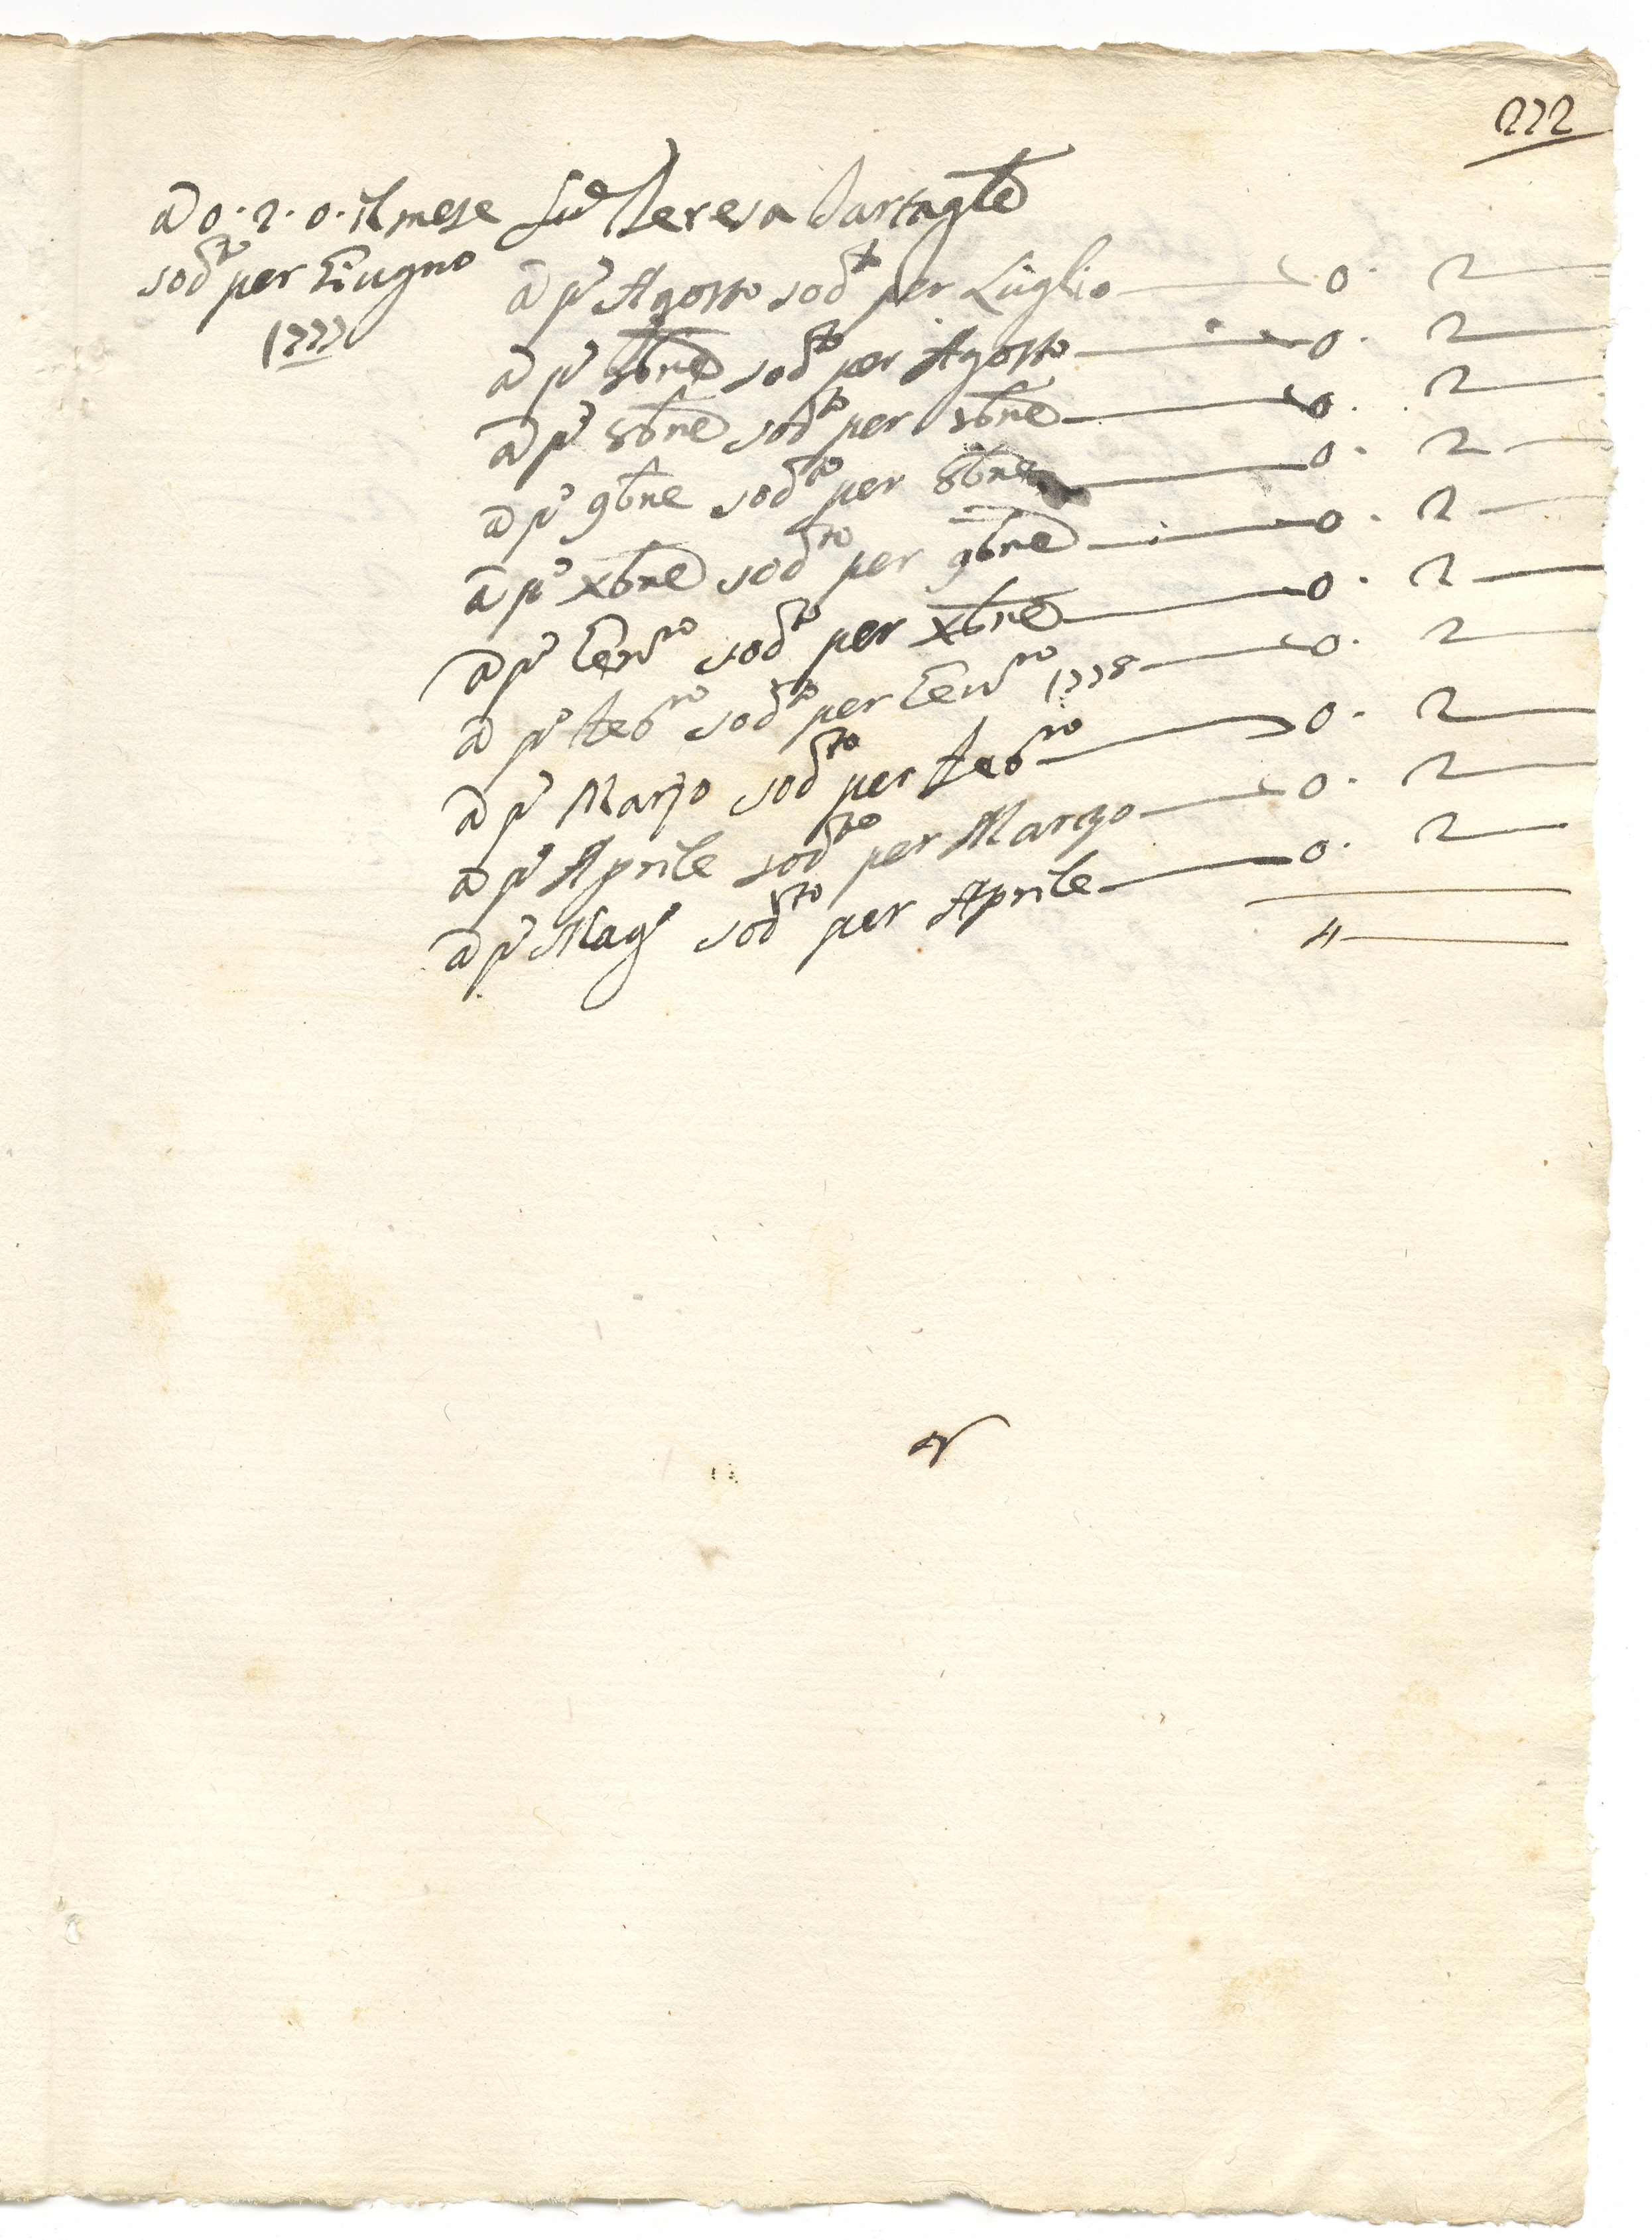 222
a 0. 2. 0. il mese Sud Teresa Bartagle
sod.to per Giugno
1777
a p.o Agosto sod.to per Luglio — 0. 2 —
a p.o 7bre sod.to per Agosto — 0. 2 —
a p.o 8bre sod.to per 7bre — 0. 2 —
a p.o 9bre sod.to per 8bre — 0. 2 —
a p.o xbre sod.to per 9bre — 0. 2 —
a p.o Gen.ro sod.to per xbre — 0. 2 —
a p.o Feb.ro sod.to per Gen.ro 1778 — 0. 2 —
a p.o Marzo sod.to per Feb.ro — 0. 2 —
a p.o Aprile sod.to per Marzo — 0. 2 —
a p.o Mag.o sod.to per Aprile — 0. 2 —
4 —